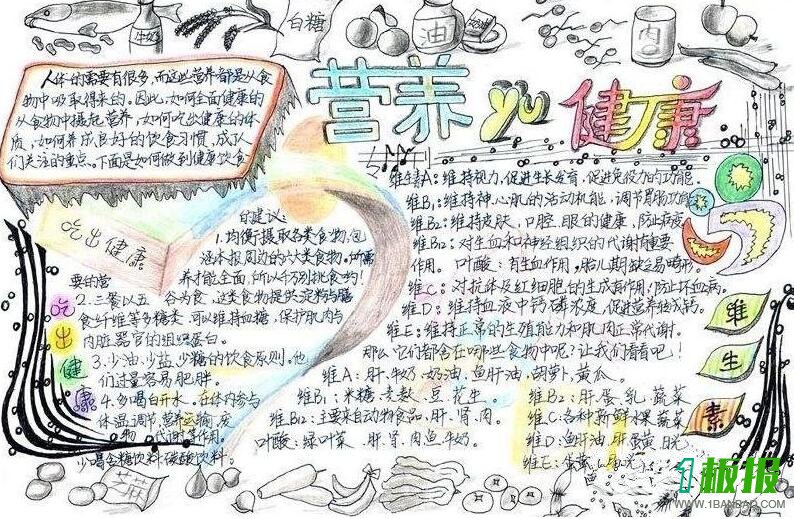 白糖
牛奶
油
肉
营养 yu 健康
人体的需要有很多,而这些营养都是从食
物中吸取得来的。因此,如何全面健康的
从食物中摄起营养,如何吃出健康的体
质,如何养成良好的饮食习惯,成了人
们关注的重点。下面是如何做到健康饮食
的建议:
吃出健康
1.均衡摄取各类食物,包
括本报周边的六大类食物。所需
要的营养才能全面,所以千万别挑食哟!
2.三餐以五谷为食,这类食物提供淀粉与膳
食纤维等多糖类,可以维持血糖,保护肌肉与
内脏器官的组织蛋白。
3.少油,少盐,少糖的饮食原则。他
们过量容易肥胖。
4.多喝白开水。在体内参与
体温调节,营养运输,废
物 代谢等作用。
少喝含糖饮料,碳酸饮料。
吃出健康
维生素A:维持视力,促进生长发育,促进免疫力的功能。
维B₁:维持神心肌的活动机能,调节胃肠功能
维B₂:维持皮肤,口腔,眼的健康,防止
维B₁₂:对生血和神经组织的代谢有重要
作用。 叶酸:有生血作用,胎儿期缺乏易畸形。
维C:对抗体及红细胞的生成有作用,防止坏血病。
维D:维持血液中钙磷浓度,促进营养
维E:维持正常的生殖能力和肌肉正常代谢。
那么,它们都含在哪些食物中呢?让我们看看吧!
维A:肝,牛奶,奶油,鱼肝油,胡萝卜,黄瓜。
维B₁:米糠,麦麸,豆,花生。 维B₂:肝,蛋,乳,蔬菜
维B₁₂:主要来自动物食品,肝,肾,肉。 维C:各种新鲜水果,蔬菜
叶酸:绿叶菜,肝,肾,肉,鱼,牛奶。 维D:鱼肝油,肝,蛋黄,日光
维E:
维
生
素
芝麻
1板报
WWW.1BANBAO.COM